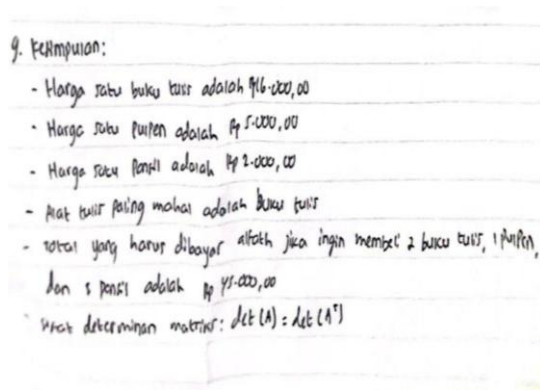 9. Kesimpulan:
- Harga satu buku tulis adalah Rp16.000,00
- Harga satu pulpen adalah Rp 5.000,00
- Harga satu Pensil adalah Rp 2.000,00
- Alat tulis paling mahal adalah buku tulis
- total yang harus dibayar alfath jika ingin membeli 2 buku tulis, 1 pulpen,
dan 5 pensil adalah Rp 45.000,00
- sifat determinan matriks: det(A) = det(Aᵀ)